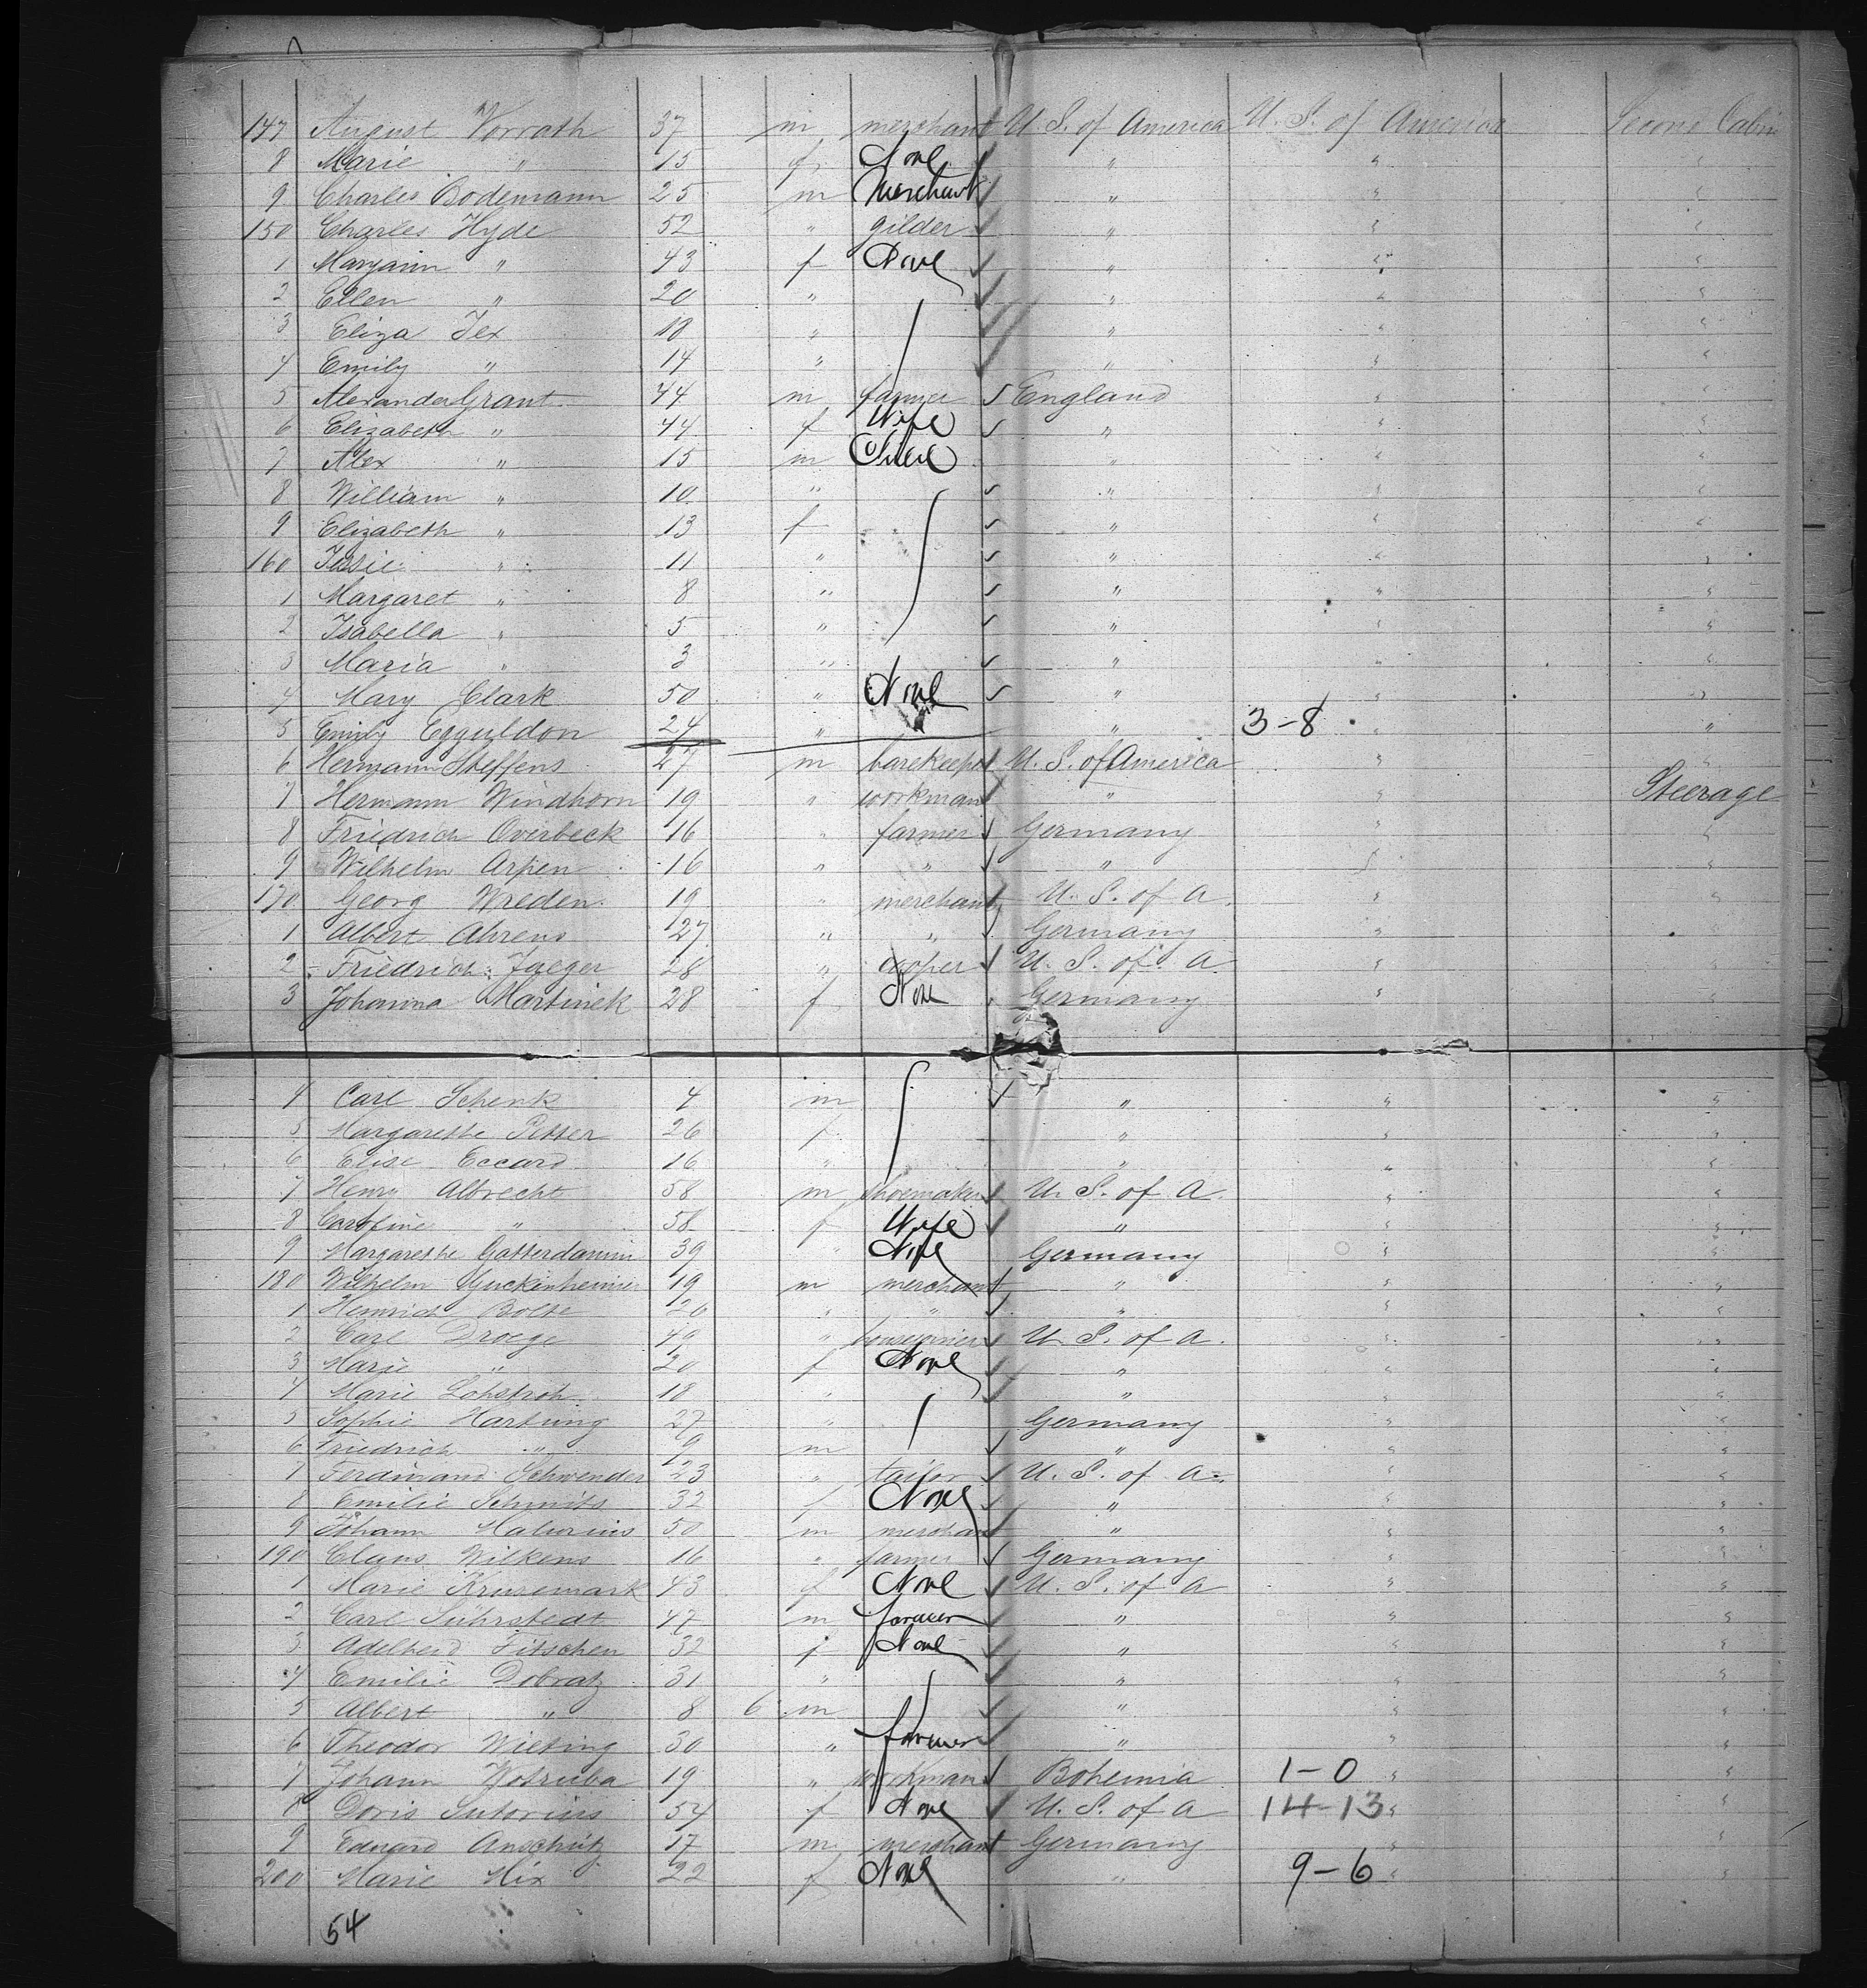 147 August Vorrath 37 m merchant U. S. of America U. S. of America Second Cabin
8 Marie " 15 f None " " "
9 Charles Bodemann 25 m Merchant " " "
150 Charles Hyde 52 " gilder " " "
1 Maryann " 43 f None " " "
2 Ellen " 20 " " " "
3 Eliza Tex 18 " " " "
4 Emily " 14 " " " "
5 Alexander Grant 44 m farmer England " "
6 Elizabeth " 44 f Wife " " "
7 Alex " 15 m Child " " "
8 William " 10 " " " "
9 Elizabeth " 13 f " " "
160 " 11 " " " "
1 Margaret " 8 " " " "
2 Isabella " 5 " " " "
3 Maria " 3 " " " "
4 Mary Clark 50 " None " " "
5 Emily Egguldon 24 " " 3-8 " "
6 Hermann Steffens 27 m barekeeper U. S. of America " "
7 Hermann Windhorn 19 " workman " " Steerage
8 Friedrich Overbeck 16 " farmer Germany " "
9 Wilhelm Arpen 16 " " " " "
170 Georg Wreden 19 " merchant U. S. of A. " "
1 Albert Ahrens 27 " " Germany " "
2 Friedrich Jaeger 28 " cooper U. S. of A. " "
3 Johanna Martinek 28 f None Germany " "
4 Carl Schenk 4 m " " "
5 Margarethe 26 f " " "
6 Elise Eccard 16 " " " "
7 Henry Albrecht 58 m shoemaker U. S. of A. " "
8 Caroline " 58 f Wife " " "
9 Margarethe Gatterdamm 39 " None Germany " "
180 Wilhelm Guckenheimer 19 m merchant " " "
1 Heinrich Bolte 26 " " " " "
2 Carl Droege 49 " housejoiner U. S. of A. " "
3 Marie " 20 f None " " "
4 Marie Lohstroh 18 " " " "
5 Sophie Hartung 27 " Germany " "
6 Friedrich " 9 m " " "
7 Ferdinand Schwender 23 " tailor U. S. of A. " "
8 Emilie Schmits 32 f None " " "
9 Johann 50 m merchant " " "
190 Claus Wilkens 16 " farmer Germany " "
1 Marie Krusemark 43 f None U. S. of A " "
2 Carl Suhrstedt 47 m farmer " " "
3 Adelheid Fitschen 32 f None " " "
4 Emilie Dobratz 31 " " " "
5 Albert " 8 6 m " " "
6 Theodor Wilking 30 " farmer " " "
7 Johann Wotruba 19 " workman Bohemia 1-0 " "
8 Doris Sutorius 54 f None U. S. of A 14-13 " "
9 Eduard Anschütz 17 m merchant Germany " "
200 Marie Hix 22 f None " 9-6 " "
54